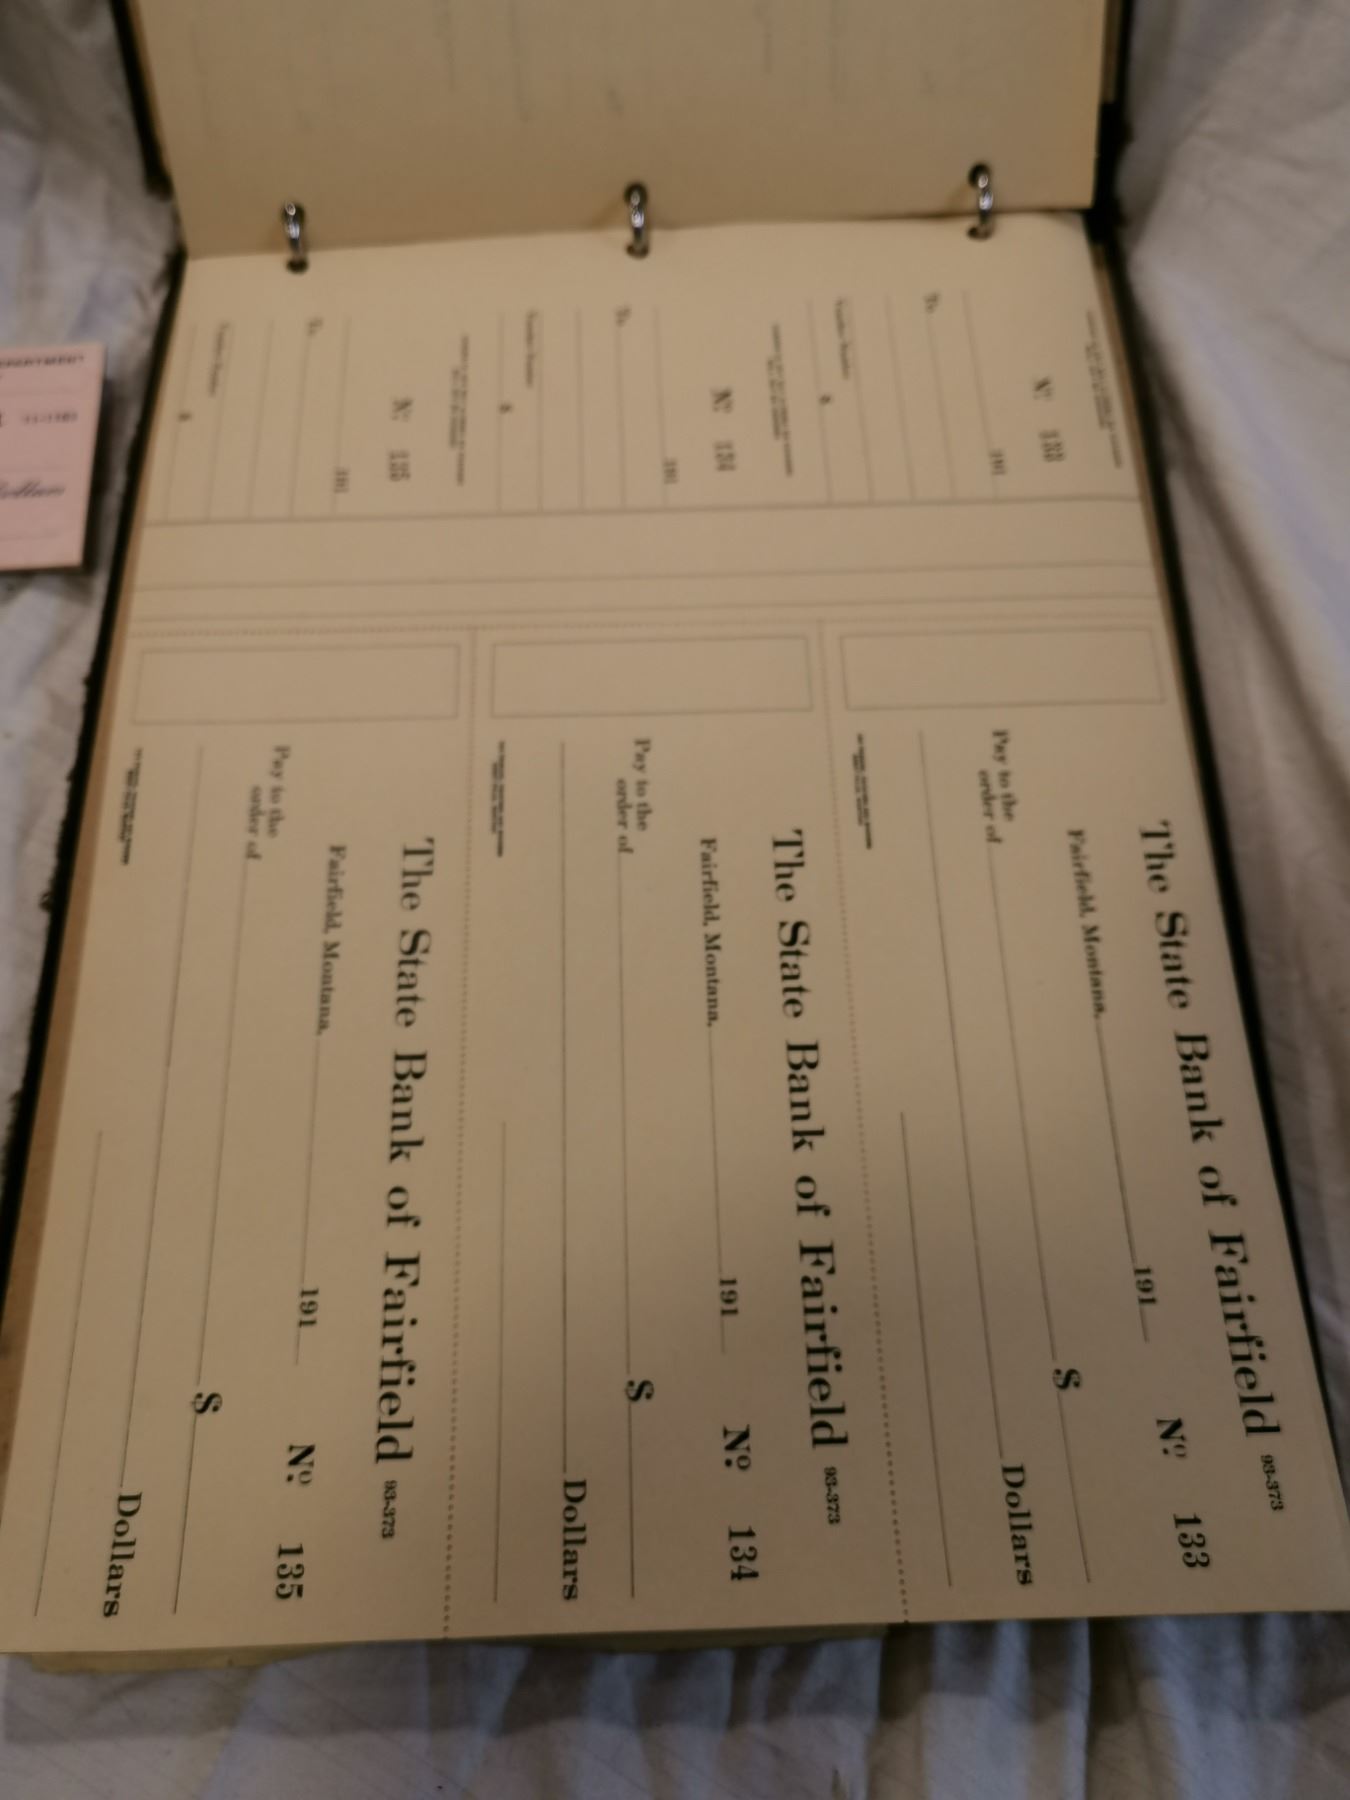 Nº 133
191
To
$
The State Bank of Fairfield 93-373
Fairfield, Montana, 191 Nº 133
Pay to the
order of $
Dollars
Nº 134
191
To
$
The State Bank of Fairfield 93-373
Fairfield, Montana, 191 Nº 134
Pay to the
order of $
Dollars
Nº 135
191
To
$
The State Bank of Fairfield 93-373
Fairfield, Montana, 191 Nº 135
Pay to the
order of $
Dollars
Dollars